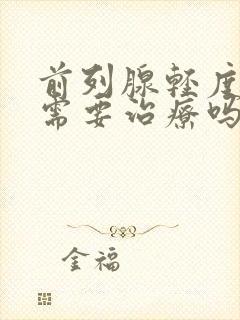 前列腺轻度
需要治疗吗
金福